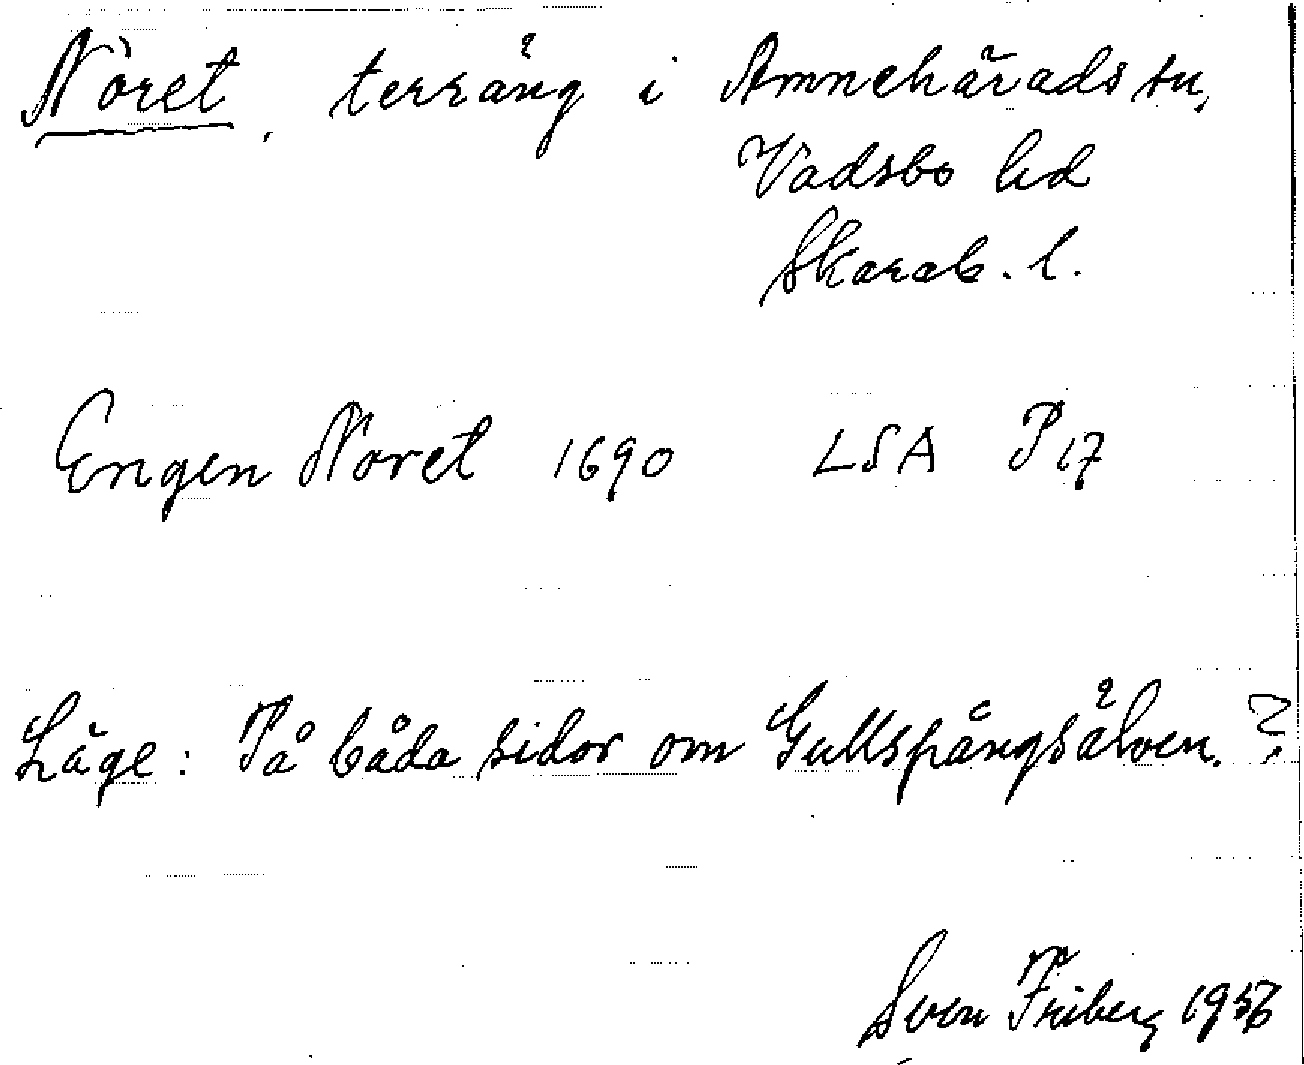 Nòret, terräng i Amnehärads sn,
Vadsbo hd
Skarab. l.
Engen Noret 1690 LSA P17
Läge: På båda sidor om Gullspångsälven.?
Sven Friberg 1956